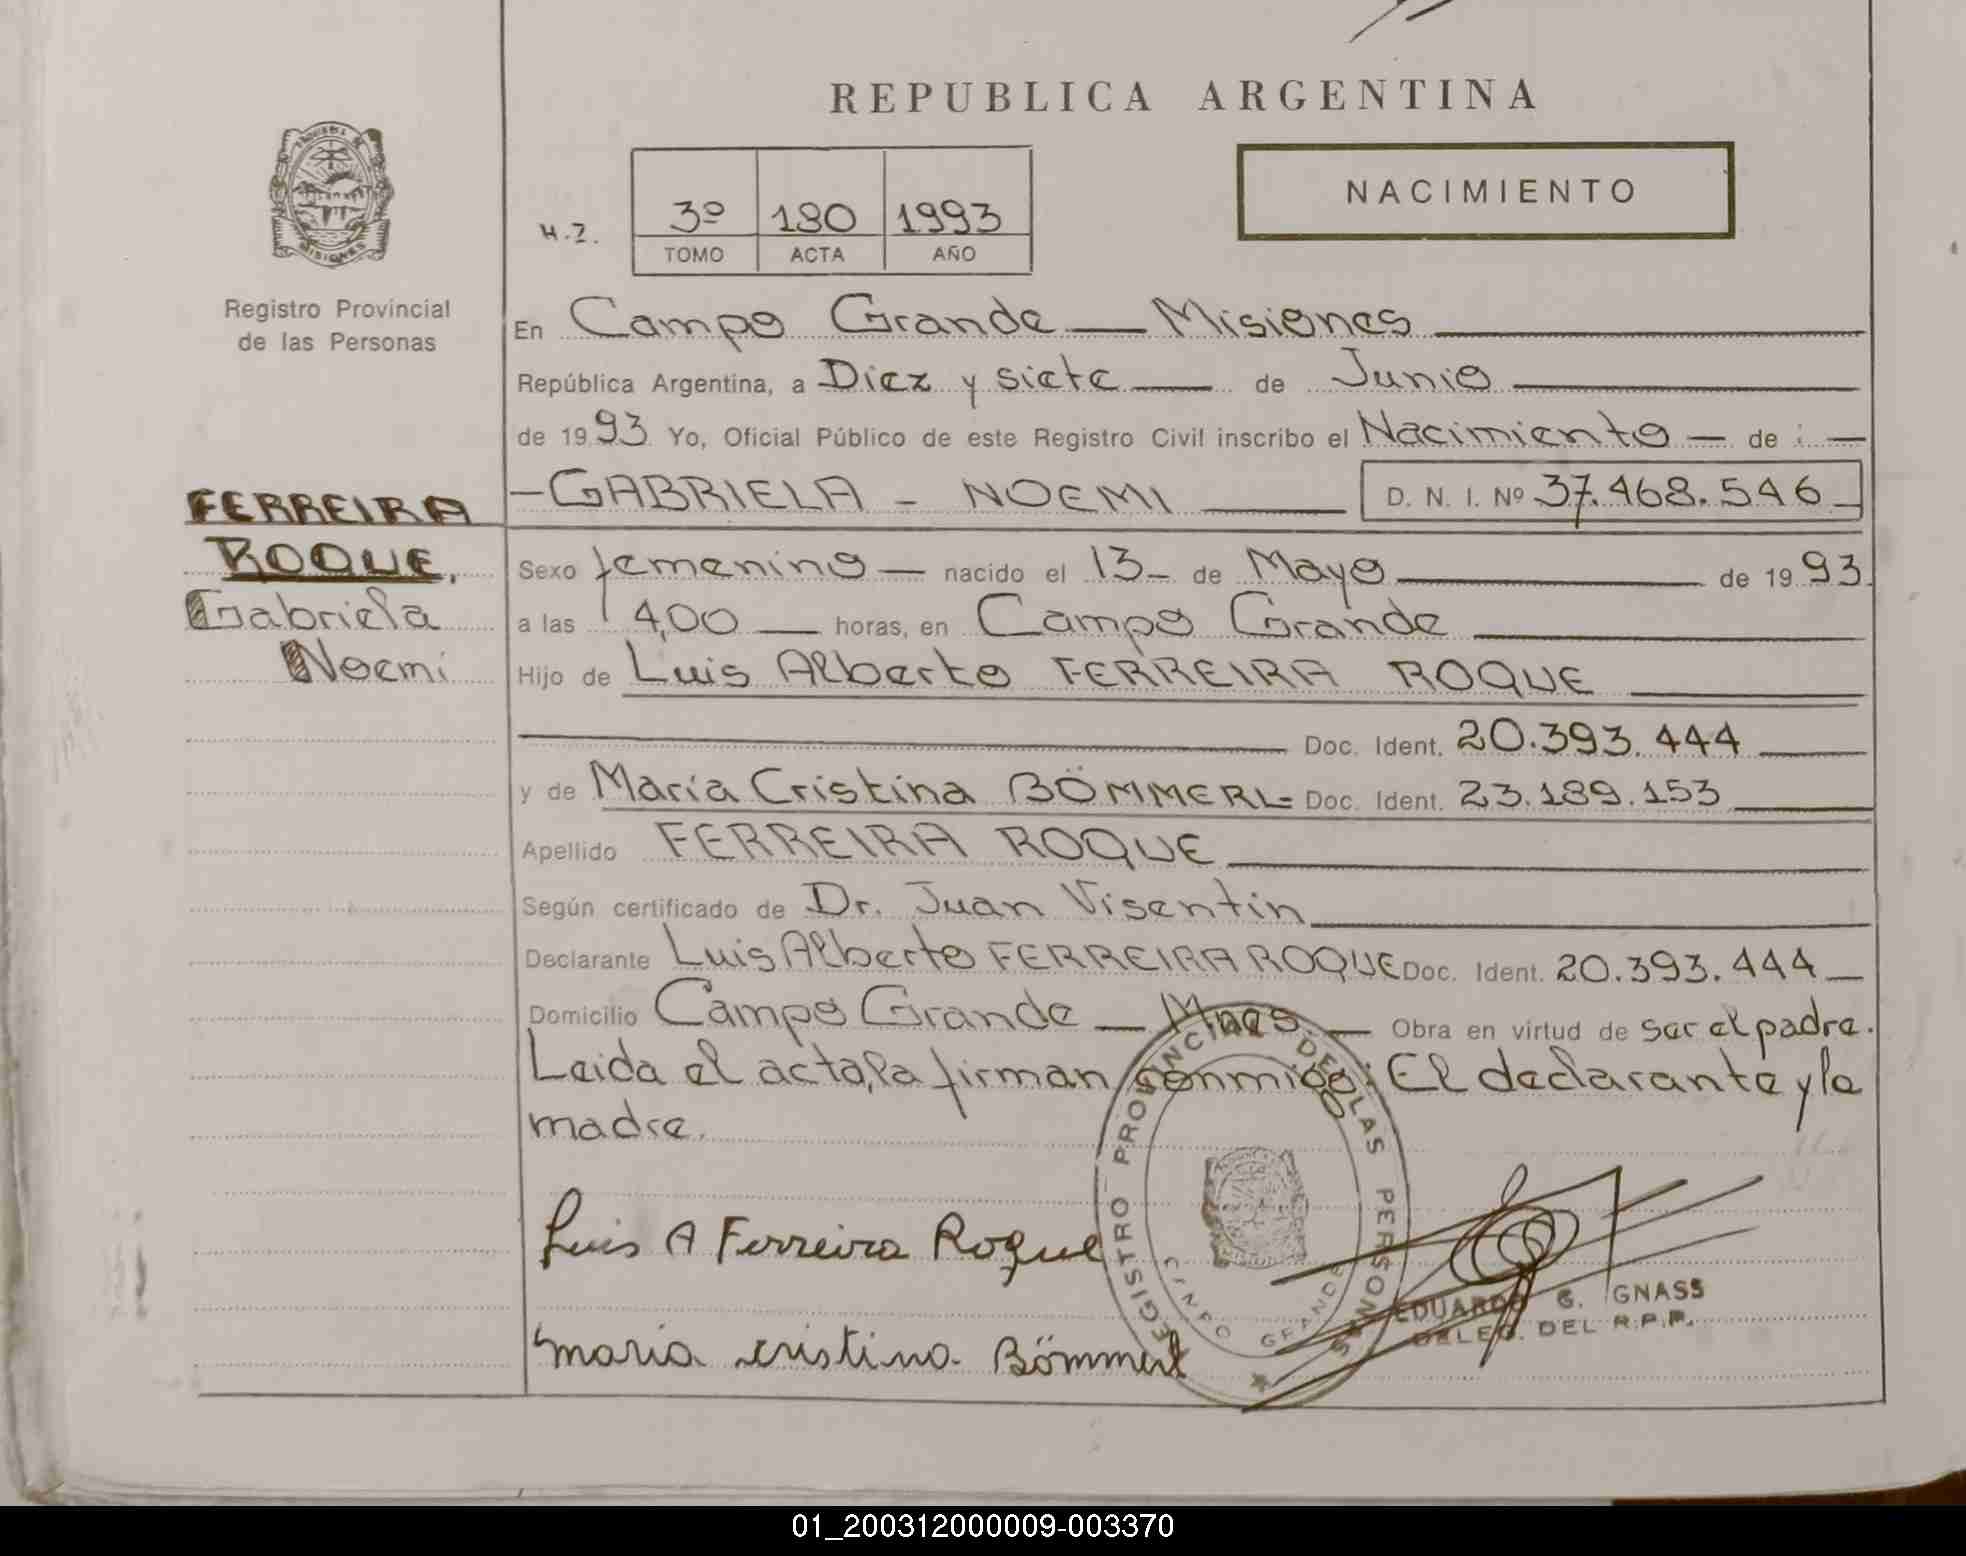 REPUBLICA ARGENTINA
NACIMIENTO
H.J.
3º 180 1993
TOMO ACTA AÑO
PROVINCIA DE
MISIONES
Registro Provincial
de las Personas
FERREIRA
ROQUE.
Gabriela
Noemi
En Campo Grande — Misiones
República Argentina, a Diez y siete — de Junio
de 1993 Yo, Oficial Público de este Registro Civil inscribo el Nacimiento — de : —
— GABRIELA - NOEMI — D. N. I. Nº 37.468.546
Sexo femenino — nacido el 13 - de Mayo — de 1993
a las 14,00 — horas, en Campo Grande
Hijo de Luis Alberto FERREIRA ROQUE
Doc. Ident. 20.393.444
y de María Cristina BÖMMERL= Doc. Ident. 23.189.153
Apellido FERREIRA ROQUE
Según certificado de Dr. Juan Visentin
Declarante Luis Alberto FERREIRA ROQUE Doc. Ident. 20.393.444
Domicilio Campo Grande — Mnes. — Obra en virtud de ser el padre.
Leida el acta, la firman conmigo: El declarante y la
madre.
Luis A Ferreira Roque
maria cristina Bömmerl
REGISTRO PROVINCIAL DE LAS PERSONAS
GRANDE
EDUARDO G. GNASS
DELEG. DEL R.P.P.
01_200312000009-003370